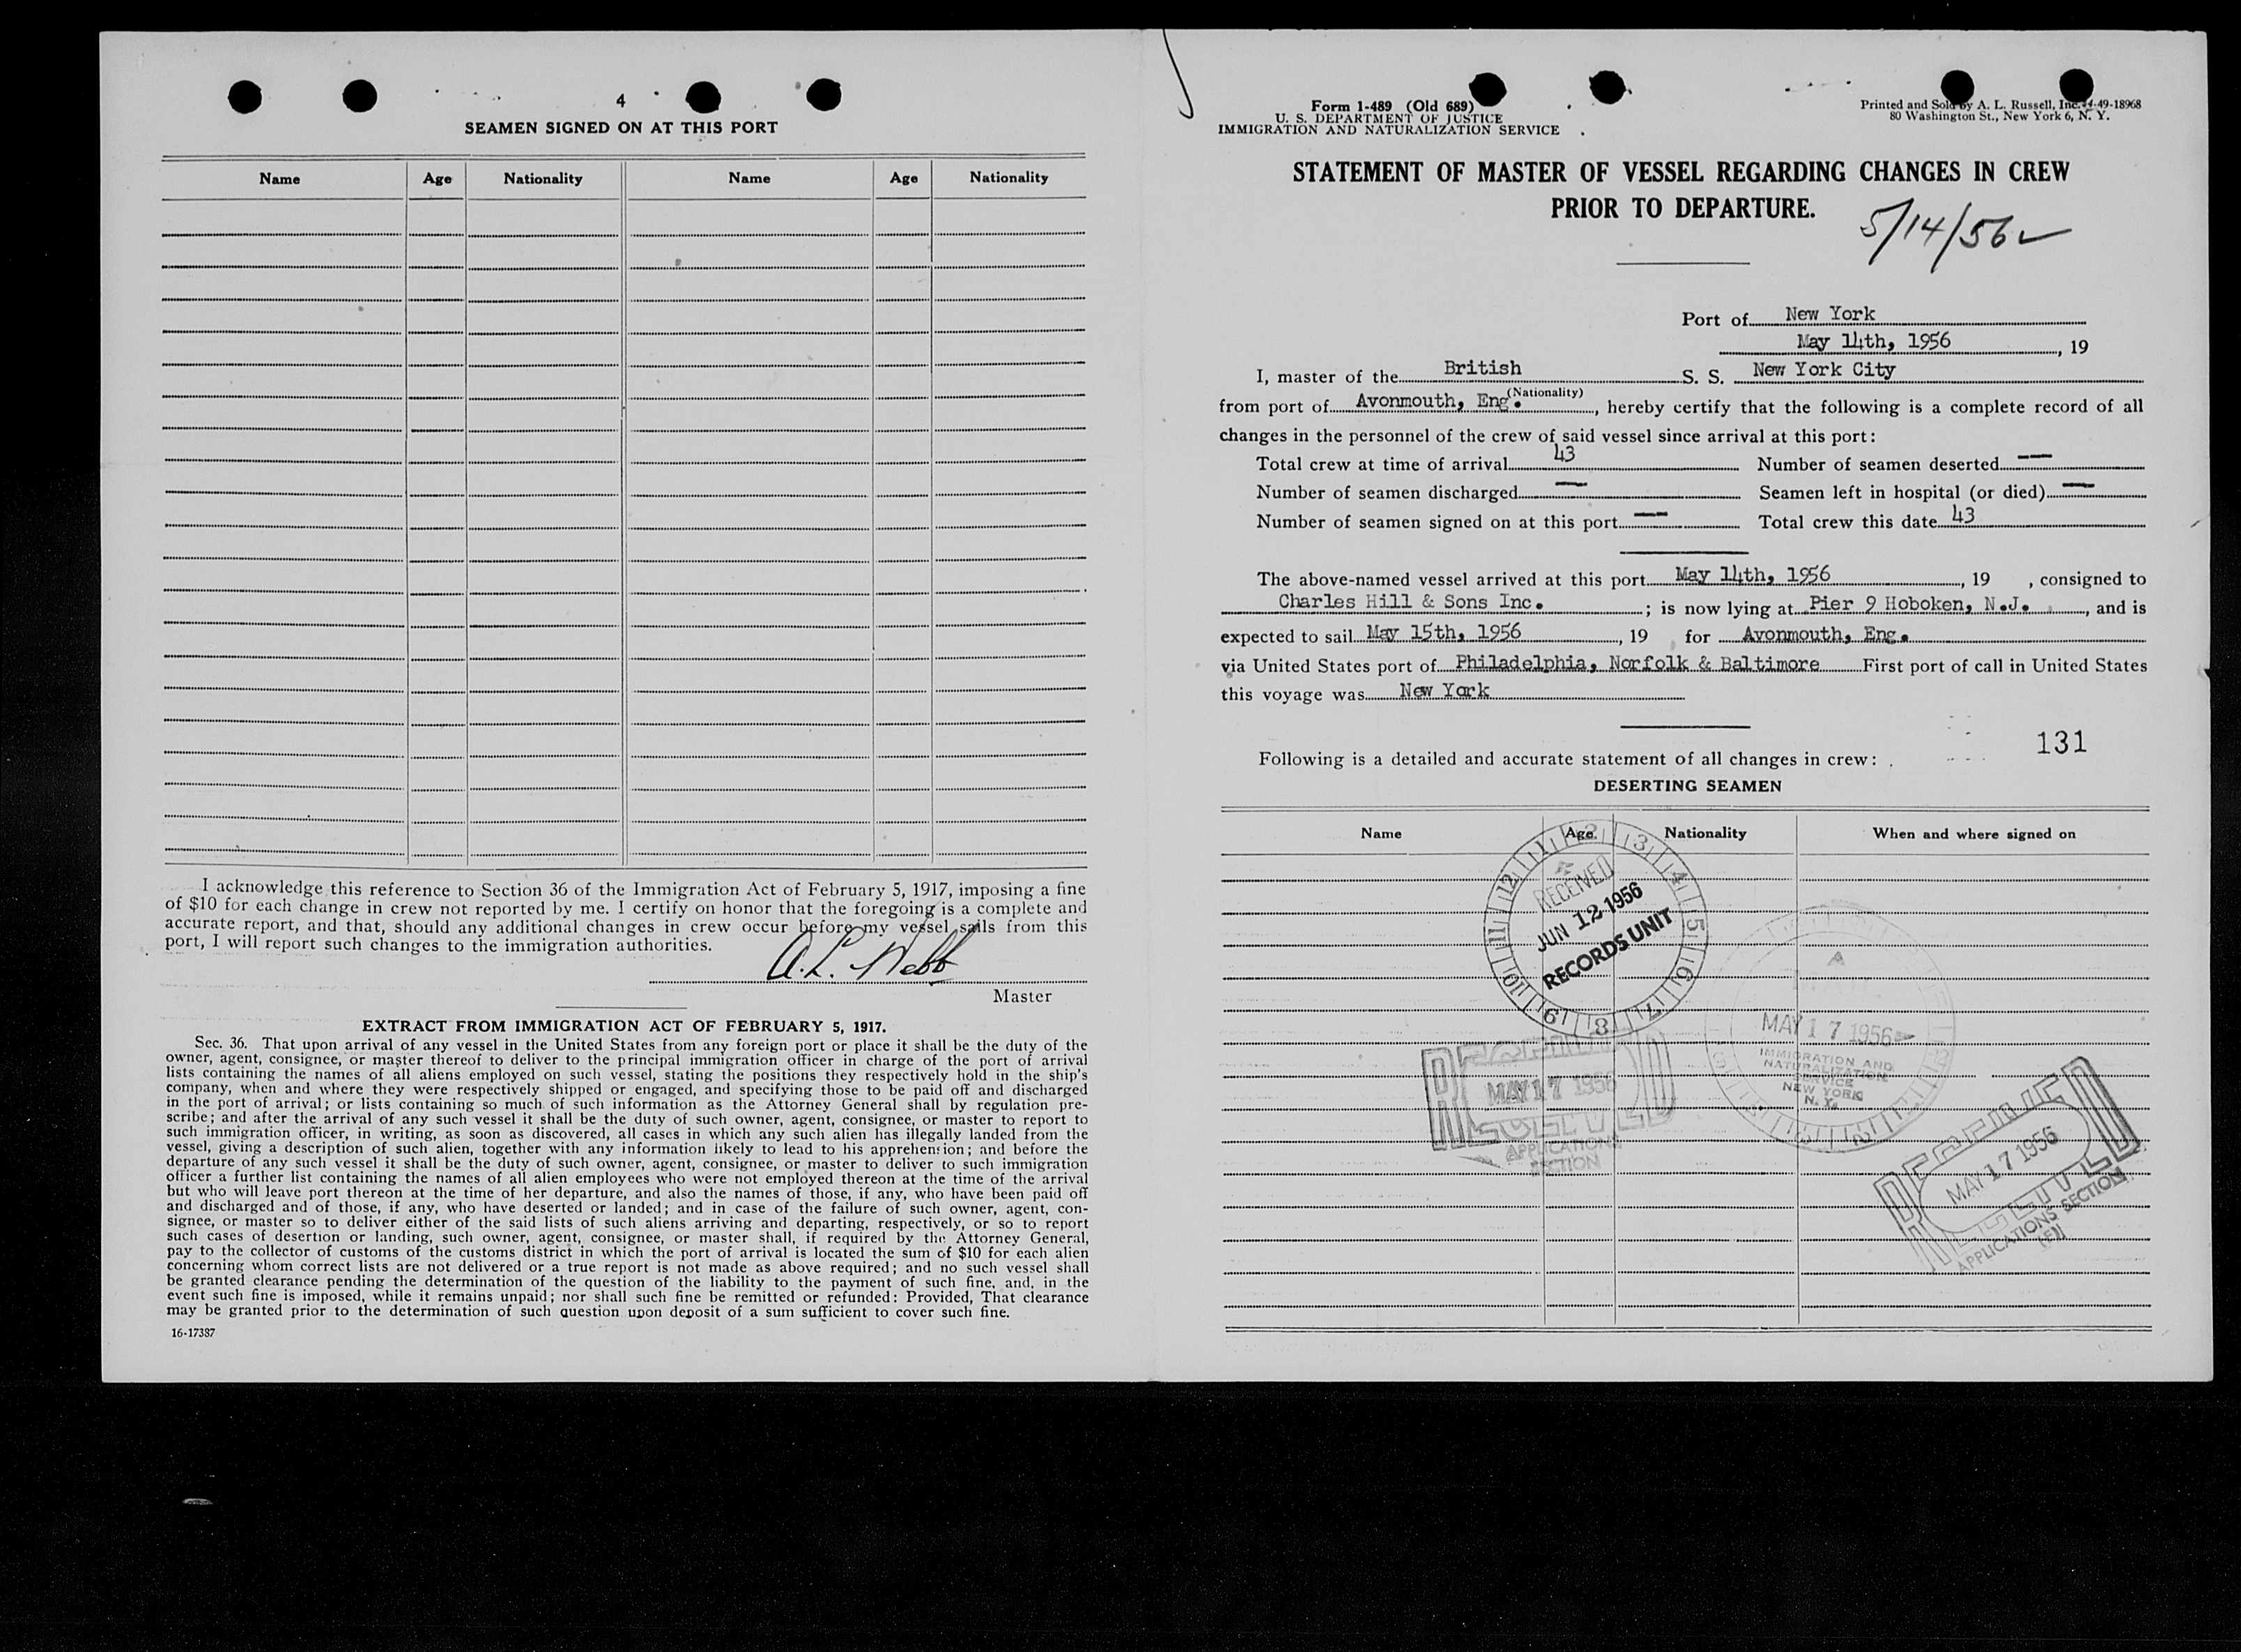 4
SEAMEN SIGNED ON AT THIS PORT
Name Age Nationality Name Age Nationality
I acknowledge this reference to Section 36 of the Immigration Act of February 5, 1917, imposing a fine
of $10 for each change in crew not reported by me. I certify on honor that the foregoing is a complete and
accurate report, and that, should any additional changes in crew occur before my vessel sails from this
port, I will report such changes to the immigration authorities.
A. L. Webb
Master
EXTRACT FROM IMMIGRATION ACT OF FEBRUARY 5, 1917.
Sec. 36. That upon arrival of any vessel in the United States from any foreign port or place it shall be the duty of the
owner, agent, consignee, or master thereof to deliver to the principal immigration officer in charge of the port of arrival
lists containing the names of all aliens employed on such vessel, stating the positions they respectively hold in the ship's
company, when and where they were respectively shipped or engaged, and specifying those to be paid off and discharged
in the port of arrival; or lists containing so much of such information as the Attorney General shall by regulation pre-
scribe; and after the arrival of any such vessel it shall be the duty of such owner, agent, consignee, or master to report to
such immigration officer, in writing, as soon as discovered, all cases in which any such alien has illegally landed from the
vessel, giving a description of such alien, together with any information likely to lead to his apprehension; and before the
departure of any such vessel it shall be the duty of such owner, agent, consignee, or master to deliver to such immigration
officer a further list containing the names of all alien employees who were not employed thereon at the time of the arrival
but who will leave port thereon at the time of her departure, and also the names of those, if any, who have been paid off
and discharged and of those, if any, who have deserted or landed; and in case of the failure of such owner, agent, con-
signee, or master so to deliver either of the said lists of such aliens arriving and departing, respectively, or so to report
such cases of desertion or landing, such owner, agent, consignee, or master shall, if required by the Attorney General,
pay to the collector of customs of the customs district in which the port of arrival is located the sum of $10 for each alien
concerning whom correct lists are not delivered or a true report is not made as above required; and no such vessel shall
be granted clearance pending the determination of the question of the liability to the payment of such fine, and, in the
event such fine is imposed, while it remains unpaid; nor shall such fine be remitted or refunded: Provided, That clearance
may be granted prior to the determination of such question upon deposit of a sum sufficient to cover such fine.
16-17387
Form 1-489 (Old 689)
U. S. DEPARTMENT OF JUSTICE
IMMIGRATION AND NATURALIZATION SERVICE
Printed and Sold by A. L. Russell, Inc. 4-49-18968
80 Washington St., New York 6, N. Y.
STATEMENT OF MASTER OF VESSEL REGARDING CHANGES IN CREW
PRIOR TO DEPARTURE.
5/14/56
Port of New York
May 14th, 1956, 19
I, master of the British S. S. New York City
(Nationality)
from port of Avonmouth, Eng., hereby certify that the following is a complete record of all
changes in the personnel of the crew of said vessel since arrival at this port:
Total crew at time of arrival 43 Number of seamen deserted —
Number of seamen discharged — Seamen left in hospital (or died) —
Number of seamen signed on at this port — Total crew this date 43
The above-named vessel arrived at this port May 14th, 1956, 19 , consigned to
Charles Hill & Sons Inc. ; is now lying at Pier 9 Hoboken, N.J. , and is
expected to sail May 15th, 1956 , 19 for Avonmouth, Eng.
via United States port of Philadelphia, Norfolk & Baltimore First port of call in United States
this voyage was New York
131
Following is a detailed and accurate statement of all changes in crew:
DESERTING SEAMEN
Name Age Nationality When and where signed on
RECEIVED
JUN 12 1956
RECORDS UNIT
MAY 17 1956
IMMIGRATION AND
NATURALIZATION
SERVICE
NEW YORK
N. Y.
RECEIVED
MAY 17 1956
APPLICATIONS
SECTION
RECEIVED
MAY 17 1956
APPLICATIONS SECTION